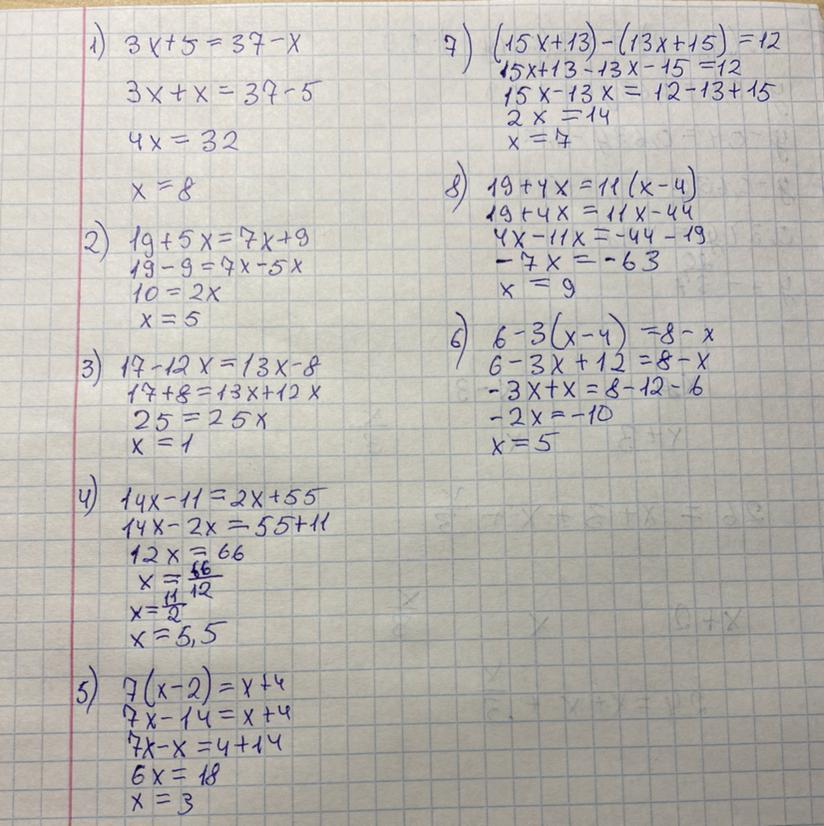 1) 3x+5=37-x
3x+x=37-5
4x=32
x=8
2) 19+5x=7x+9
19-9=7x-5x
10=2x
x=5
3) 17-12x=13x-8
17+8=13x+12x
25=25x
x=1
4) 14x-11=2x+55
14x-2x=55+11
12x=66
x=66/12
x=11/2
x=5,5
5) 7(x-2)=x+4
7x-14=x+4
7x-x=4+14
6x=18
x=3
7) (15x+13)-(13x+15)=12
15x+13-13x-15=12
15x-13x=12-13+15
2x=14
x=7
8) 19+4x=11(x-4)
19+4x=11x-44
4x-11x=-44-19
-7x=-63
x=9
6) 6-3(x-4)=8-x
6-3x+12=8-x
-3x+x=8-12-6
-2x=-10
x=5